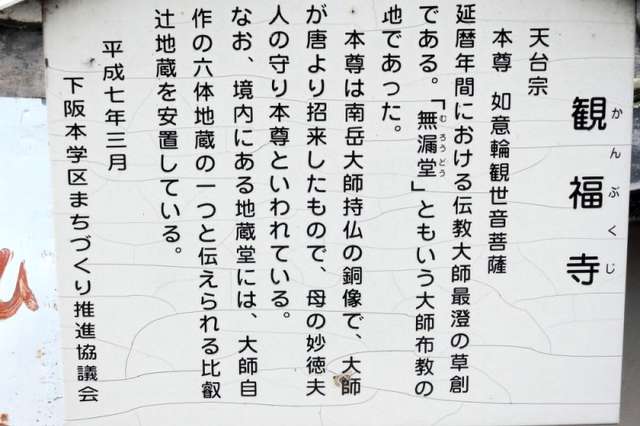 観福寺
かんぷくじ
天台宗
本尊 如意輪観世音菩薩
延暦年間における伝教大師最澄の草創
である。「無漏堂」ともいう大師布教の
むろうどう
地であった。
本尊は南岳大師持仏の銅像で、大師
が唐より招来したもので、母の妙徳夫
人の守り本尊といわれている。
なお、境内にある地蔵堂には、大師自
作の六体地蔵の一つと伝えられる比叡
辻地蔵を安置している。
平成七年三月
下阪本学区まちづくり推進協議会